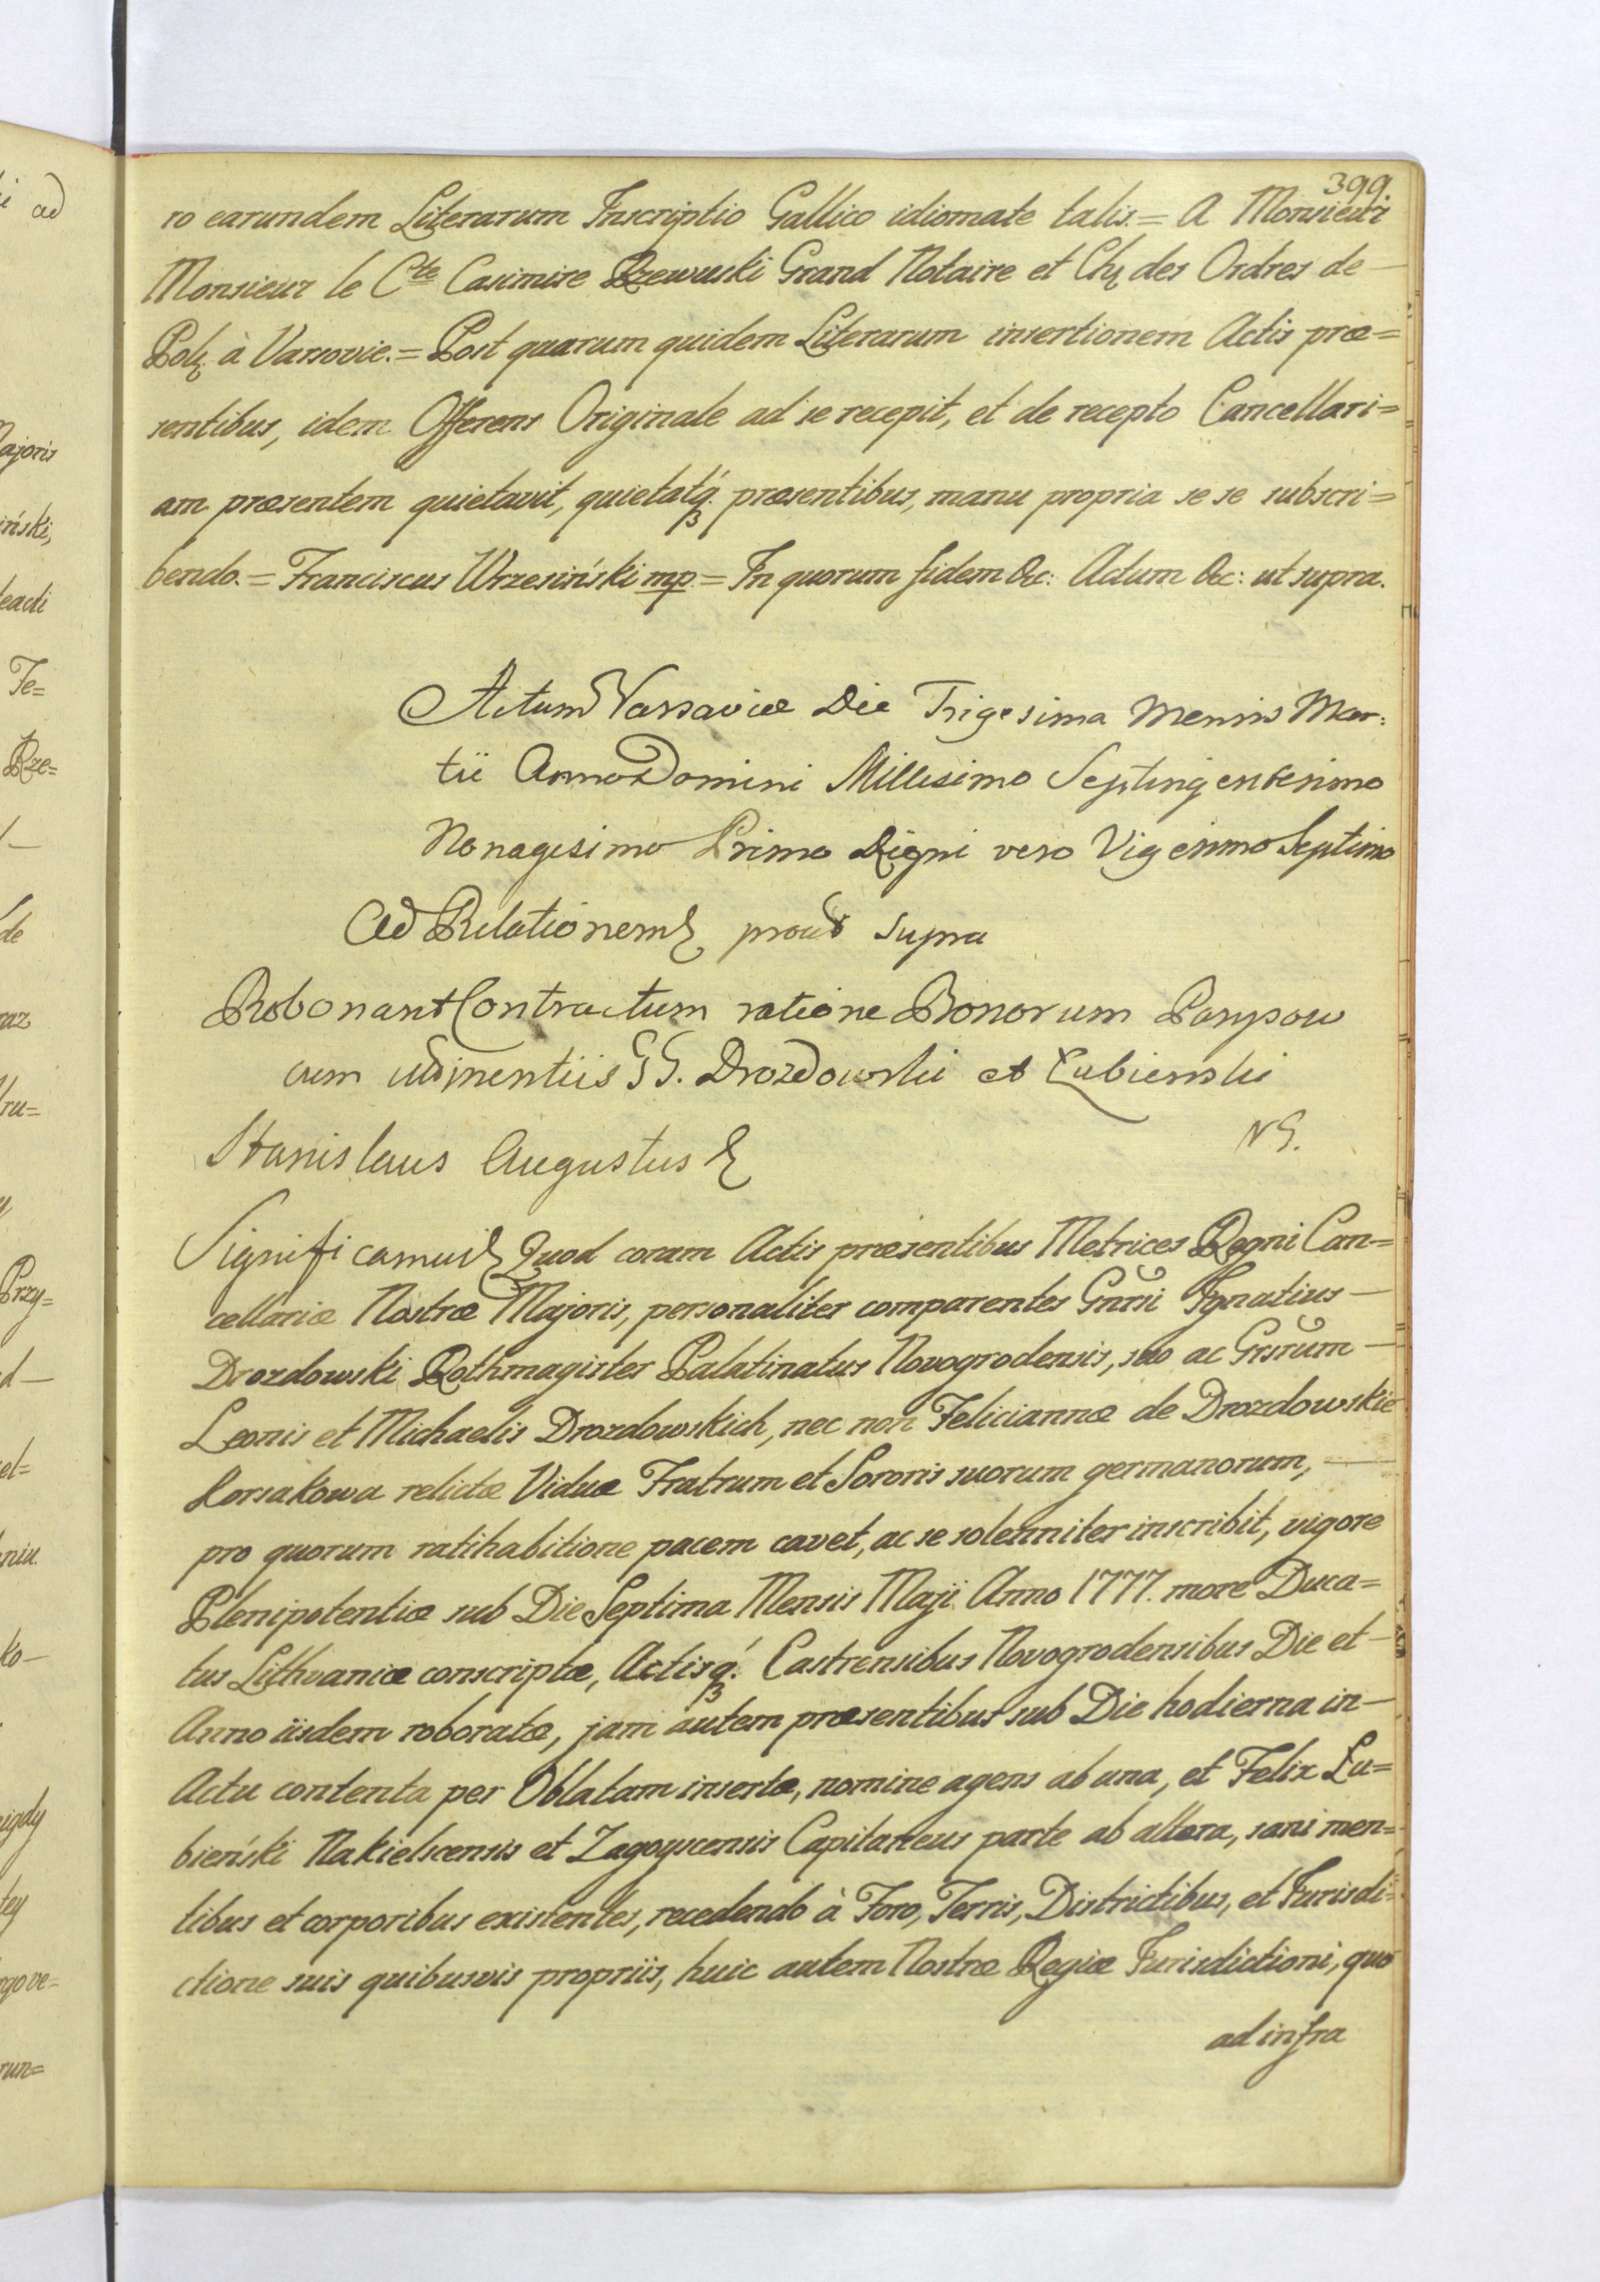 399.
ro earundem Literarum Inscriptio Gallico idiomate talis. = A Monsieur
Monsieur le Cte Casimire Rzewuski Grand Notaire et Chr des Ordres de —
Pol: à Varsovie. = Post quarum quidem Literarum insertionem Actis præ=
sentibus, idem Offerens Originale ad se recepit, et de recepto Cancellari=
am præsentem quietavit, quietatq́ præsentibus, manu propria se se subscri=
bendo. = Franciscus Wrzesiński mp. = In quorum fidem &c: Actum &c: ut supra.
Actum Varsaviæ Die Trigesima Mensis Mar:
tii Anno Domini Millesimo Septingentesimo
Nonagesimo Primo Regni vero Vigesimo Septimo
Ad Relationem prout supra
Roborant Contractum ratione Bonorum Parysow
cum adjnentiis GG. Drozdowski et Łubienski
NG.
Stanislaus Augustus
Significamus Quod coram Actis præsentibus Metrices Regni Can=
cellariæ Nostræ Majoris, personaliter comparentes Gnrsi Ignatius —
Drozdowski Rothmagister Palatinatus Novogrodensis, suo ac Grsrum —
Leonis et Michaelis Drozdowskich, nec non Feliciannæ de Drozdowskie
Korsakowa relictæ Viduæ Fratrum et Sororis suorum germanorum, —
pro quorum ratihabitione pacem cavet, ac se solenniter inscribit, vigore
Plenipotentiæ sub Die Septima Mensis Maji Anno 1777. more Duca=
tus Lithvaniæ conscriptæ, Actisq́ Castrensibus Novogrodensibus Die et —
Anno iisdem roboratæ, jam autem præsentibus sub Die hodierna in —
Actu contenta per Oblatam insertæ, nomine agens ab una, et Felix Łu=
bieński Nakielscensis et Zagoyscensis Capitaneus parte ab altera, sani men=
tibus et corporibus existentes, recedendo à Foro, Terris, Districtibus, et Jurisdi=
ctione suis quibusvis propriis, huic autem Nostræ Regiæ Jurisdictioni, quo
ad infra